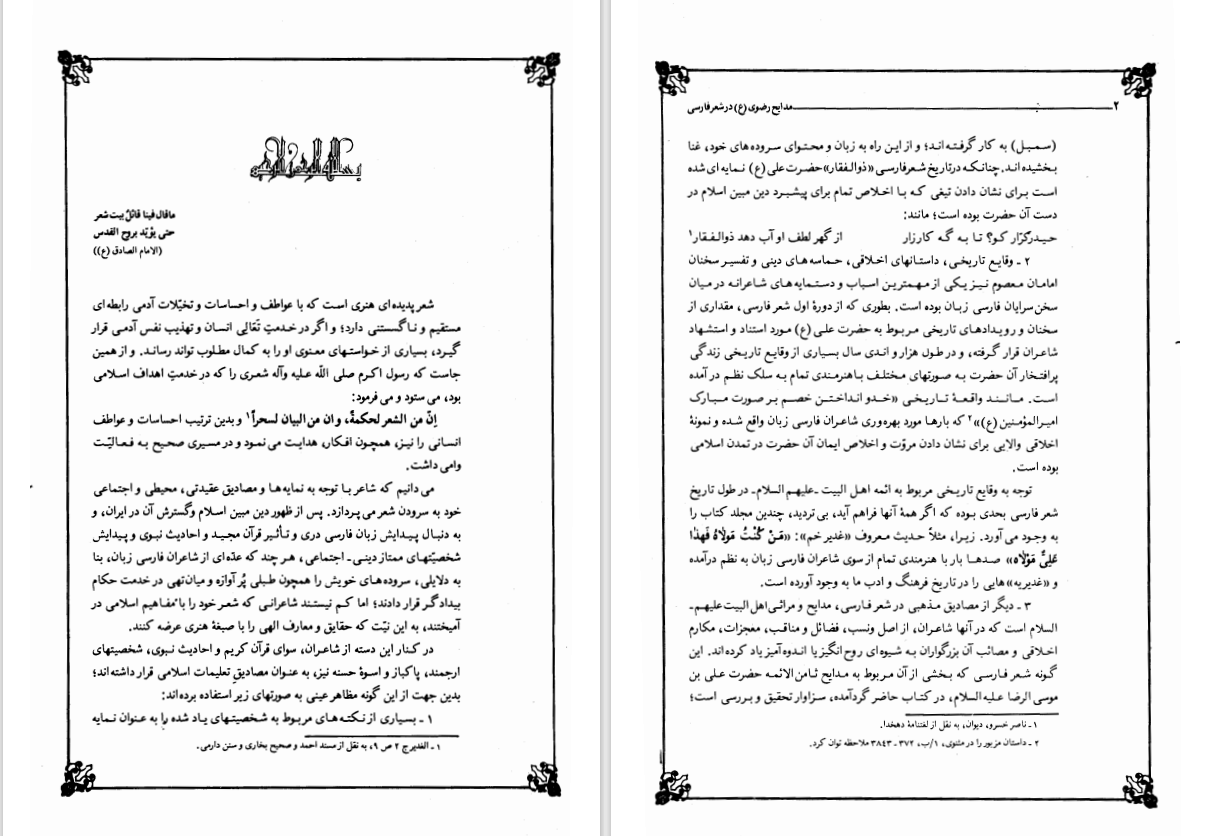 بسم الله الرحمن الرحیم
ماقال فینا قائلٌ بیت شعر
حتی یؤیّد بروح القدس
(الامام الصادق (ع))
شعر پدیده ای هنری است که با عواطف و احساسات و تخیّلات آدمی رابطه ای
مستقیم و ناگسستنی دارد؛ و اگر در خدمتِ تَعٰالِی انسان و تهذیب نفس آدمی قرار
گیرد، بسیاری از خواستهای معنوی او را به کمال مطلوب تواند رساند. و از همین
جاست که رسول اکرم صلی اللّه علیه وآله شعری را که در خدمتِ اهداف اسلامی
بود، می ستود و می فرمود:
اِنّ من الشعر لحکمةً، و ان من البیان لسحراً۱ و بدین ترتیب احساسات و عواطف
انسانی را نیز، همچون افکار، هدایت می نمود و در مسیری صحیح به فعالیّت
وامی داشت.
می دانیم که شاعر با توجه به نمایه ها و مصادیق عقیدتی، محیطی و اجتماعی
خود به سرودن شعر می پردازد. پس از ظهور دین مبین اسلام وگسترش آن در ایران، و
به دنبال پیدایش زبان فارسی دری و تأثیر قرآن مجید و احادیث نبوی و پیدایش
شخصیّتهای ممتاز دینی ـ اجتماعی، هر چند که عدّه ای از شاعران فارسی زبان، بنا
به دلایلی، سروده های خویش را همچون طبلی پُر آوازه و میان تهی در خدمت حکام
بیدادگر قرار دادند؛ اما کم نیستند شاعرانی که شعر خود را با مفاهیم اسلامی در
آمیختند، به این نیّت که حقایق و معارف الهی را با صبغهٔ هنری عرضه کنند.
در کنار این دسته از شاعران، سوای قرآن کریم و احادیث نبوی، شخصیتهای
ارجمند، پاکباز و اسوهٔ حسنه نیز، به عنوان مصادیقِ تعلیمات اسلامی قرار داشته اند؛
بدین جهت از این گونه مظاهر عینی به صورتهای زیر استفاده برده اند:
۱ ـ بسیاری از نکته های مربوط به شخصیتهای یاد شده را به عنوان نمایه
۱ ـ الغدیرج ۲ ص ۹، به نقل از مسند احمد و صحیح بخاری و سنن دارمی.
۲ مدایح رضوی (ع) در شعر فارسی
(سمبل) به کار گرفته اند؛ و از این راه به زبان و محتوای سروده های خود، غنا
بخشیده اند. چنانکه درتاریخ شعرفارسی «ذوالفقار» حضرت علی (ع) نمایه ای شده
است برای نشان دادن تیغی که با اخلاص تمام برای پیشبرد دین مبین اسلام در
دست آن حضرت بوده است؛ مانند:
حیدر کرّار کو؟ تا به گه کارزار از گهر لطف او آب دهد ذوالفقار۱
۲ ـ وقایع تاریخی، داستانهای اخلاقی، حماسه های دینی و تفسیر سخنان
امامان معصوم نیز یکی از مهمترین اسباب و دستمایه های شاعرانه در میان
سخن سرایان فارسی زبان بوده است. بطوری که از دورهٔ اول شعر فارسی، مقداری از
سخنان و رویدادهای تاریخی مربوط به حضرت علی (ع) مورد استناد و استشهاد
شاعران قرار گرفته، و در طول هزار و اندی سال بسیاری از وقایع تاریخی زندگی
پرافتخار آن حضرت به صورتهای مختلف با هنرمندی تمام به سلک نظم در آمده
است. مانند واقعهٔ تاریخی «خدو انداختن خصم بر صورت مبارک
امیرالمؤمنین (ع)»۲ که بارها مورد بهره وری شاعران فارسی زبان واقع شده و نمونهٔ
اخلاقی والایی برای نشان دادن مروّت و اخلاص ایمان آن حضرت در تمدن اسلامی
بوده است.
توجه به وقایع تاریخی مربوط به ائمه اهل البیت ـ علیهم السلام ـ در طول تاریخ
شعر فارسی بحدی بوده که اگر همهٔ آنها فراهم آید، بی تردید، چندین مجلد کتاب را
به وجود می آورد. زیرا، مثلاً حدیث معروف «غدیر خم»: «مَنْ کُنْتُ مَوْلٰاهُ فَهٰذٰا
عَلِیٌّ مَوْلٰاه» صدها بار با هنرمندی تمام از سوی شاعران فارسی زبان به نظم درآمده
و «غدیریه» هایی را در تاریخ فرهنگ و ادب ما به وجود آورده است.
۳ ـ دیگر از مصادیق مذهبی در شعر فارسی، مدایح و مراثی اهل البیت علیهم ـ
السلام است که در آنها شاعران، از اصل ونسب، فضائل و مناقب، معجزات، مکارم
اخلاقی و مصائب آن بزرگواران به شیوه ای روح انگیز یا اندوه آمیز یاد کرده اند. این
گونه شعر فارسی که بخشی از آن مربوط به مدایح ثامن الائمه حضرت علی بن
موسی الرضا علیه السلام، در کتاب حاضر گردآمده، سزاوار تحقیق و بررسی است؛
۱ ـ ناصر خسرو، دیوان، به نقل از لغتنامهٔ دهخدا.
۲ ـ داستان مزبور را در مثنوی، ۱/ب، ۳۷۲ ـ ۳۸۴۳ ملاحظه توان کرد.